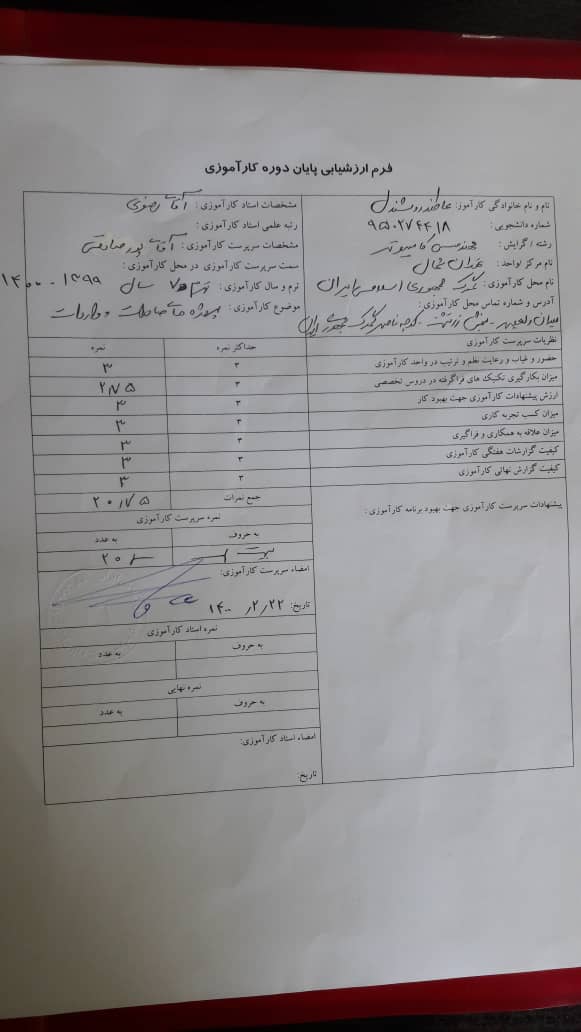 فرم ارزشیابی پایان دوره کارآموزی
نام و نام خانوادگی کارآموز:
شماره دانشجویی: ۹۵۰۲۷۴۴۱۸
رشته / گرایش: مهندسی کامپیوتر
نام مرکز /واحد: تهران شمال
نام محل کارآموزی: گمرک جمهوری اسلامی ایران
آدرس و شماره تماس محل کارآموزی:
مشخصات استاد کارآموزی: آقای رضوی
رتبه علمی استاد کارآموزی:
مشخصات سرپرست کارآموزی: آقای پورصادقی
سمت سرپرست کارآموزی در محل کارآموزی:
ترم و سال کارآموزی: سال ۱۳۹۹-۱۴۰۰
موضوع کارآموزی: صادرات و واردات
نظریات سرپرست کارآموزی حداکثر نمره نمره
حضور و غیاب و رعایت نظم و ترتیب در واحد کارآموزی ۳ ۳
میزان بکارگیری تکنیک های فراگرفته در دروس تخصصی ۳ ۲/۷۵
ارزش پیشنهادات کارآموزی جهت بهبود کار ۳ ۳
میزان کسب تجربه کاری ۳ ۳
میزان علاقه به همکاری و فراگیری ۳ ۳
کیفیت گزارشات هفتگی کارآموزی ۳ ۳
کیفیت گزارش نهائی کارآموزی ۳ ۳
جمع نمرات ۲۰/۷۵
پیشنهادات سرپرست کارآموزی جهت بهبود برنامه کارآموزی:
نمره سرپرست کارآموزی
به حروف به عدد
بیست ۲۰
امضاء سرپرست کارآموزی:
تاریخ: ۱۴۰۰/۲/۲۲
نمره استاد کارآموزی
به حروف به عدد
نمره نهایی
به حروف به عدد
امضاء استاد کارآموزی:
تاریخ: